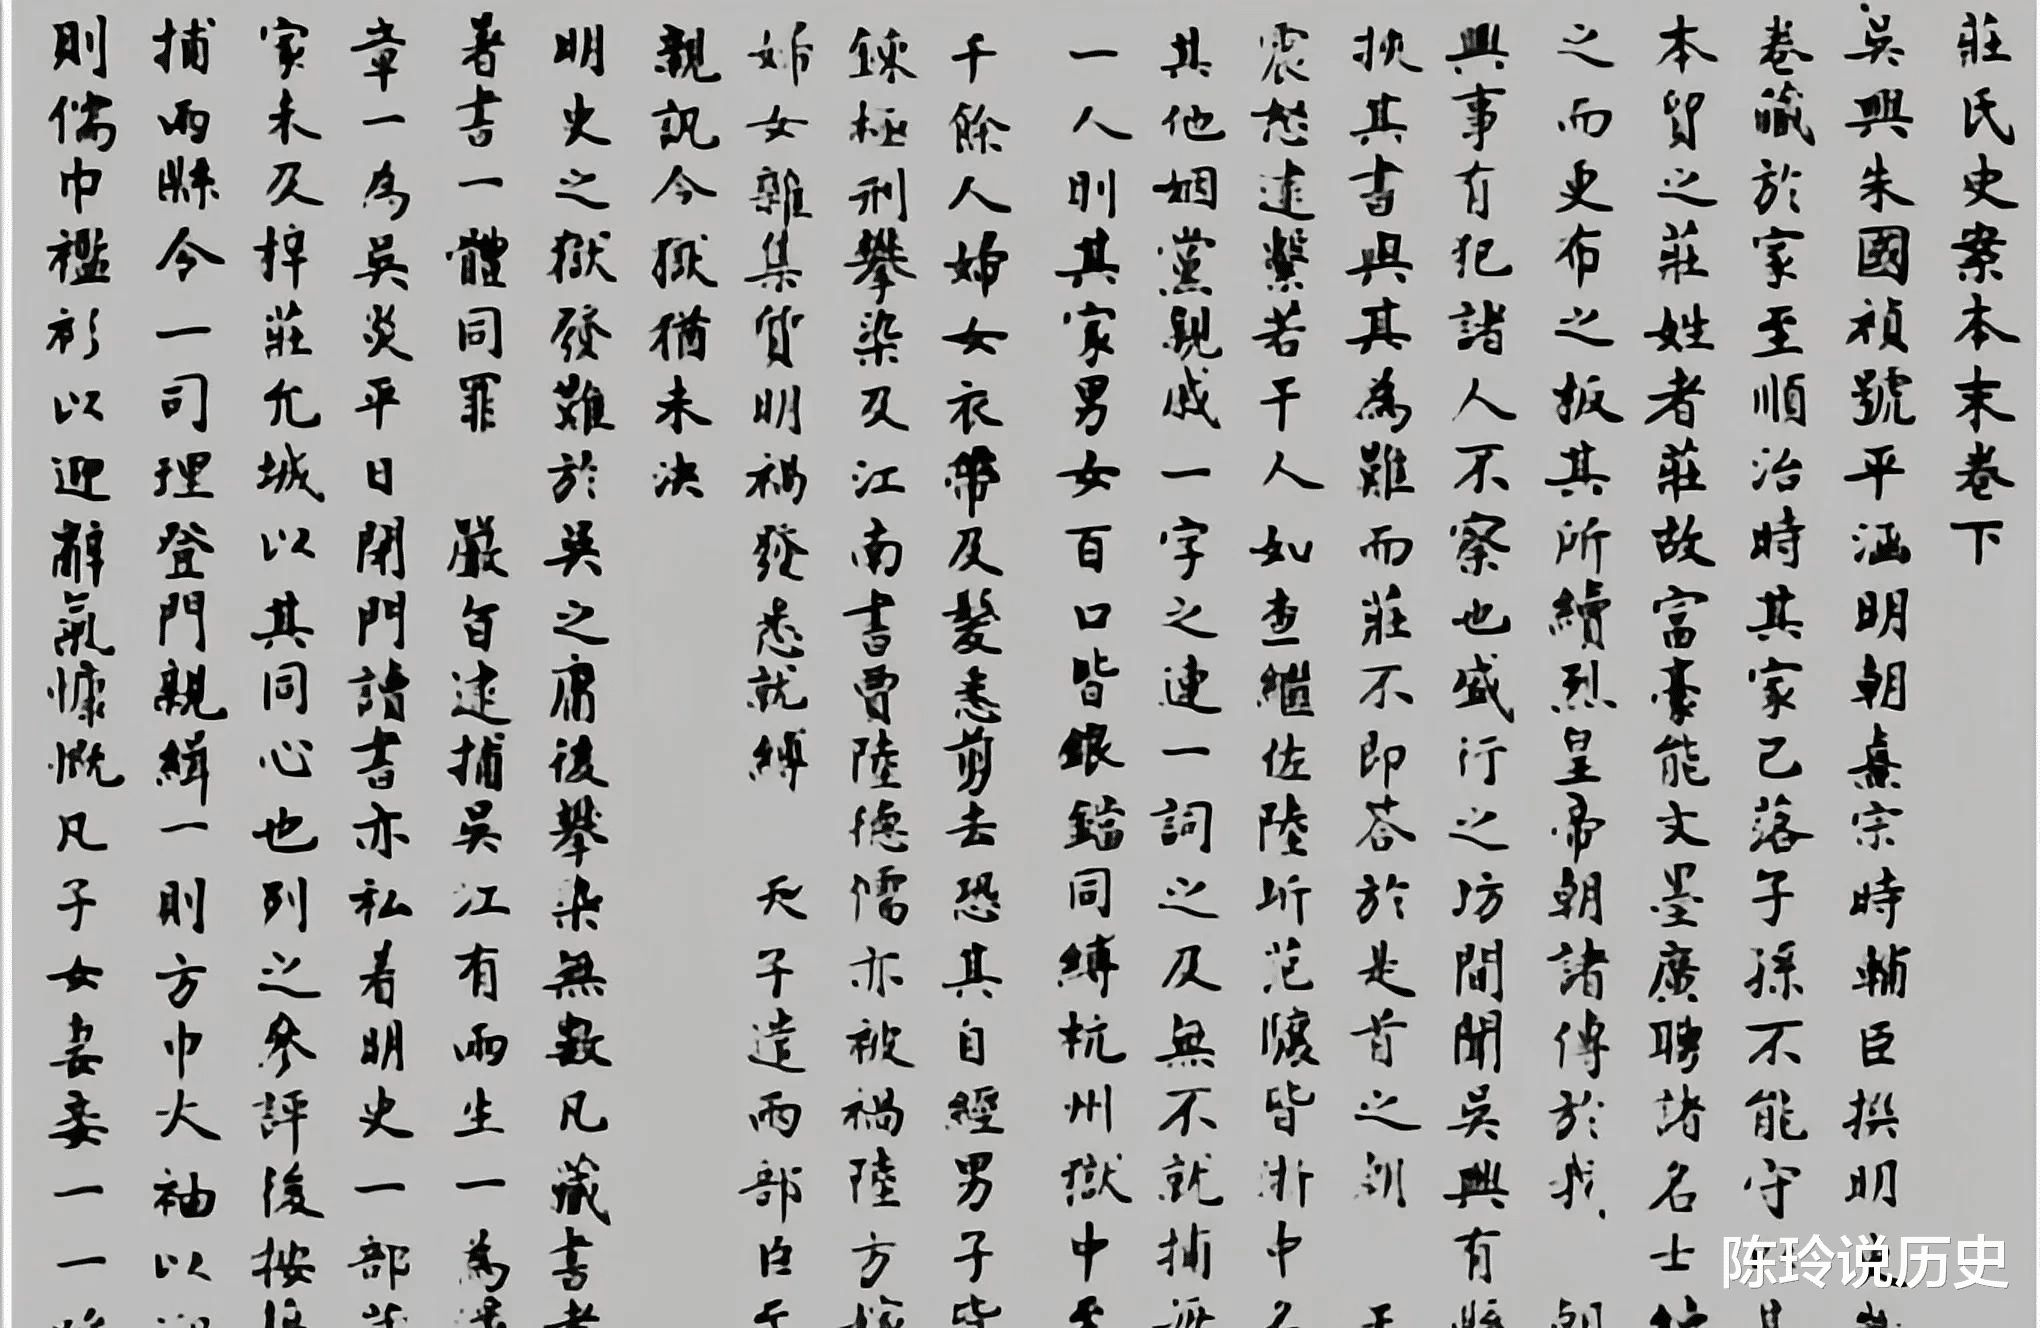 莊氏史案本末卷下
吳興朱國禎號平涵明朝熹宗時輔臣撰明
卷藏於家至順治時其家已落子孫不能守
本貿之莊姓者莊故富豪能文墨廣聘諸名士
之而更布之扳其所續烈皇帝朝諸傳於我
興事有犯諸人不察也盛行之坊間聞吳興有
挾其書與其為難而莊不即荅於是首之
震怒逮繫若干人如查繼佐陸圻范驤皆浙中
其他姻黨親戚一字之連一詞之及無不就捕
一人則其家男女百口皆銀鐺同縛杭州獄中
千餘人婦女衣帶及髮悉剪去恐其自經男子皆
鍊極刑攀染及江南書賈陸德儒亦被禍陸方
婦女雜集貨明禍發悉就縛 天子遣兩部臣
親訊今獄猶未決
明史之獄發難於吳之庸後攀染無數凡藏書者
著書一體同罪 嚴旨逮捕吳江有兩生一為
章一為吳炎平日閉門讀書亦私着明史一部
家未及梓莊允城以其同心也列之參評後按
捕兩縣令一司理登門親緝一則方巾大袖以
則儒巾襤衫以迎辭氣慷慨凡子女妻妾一一
陈玲说历史